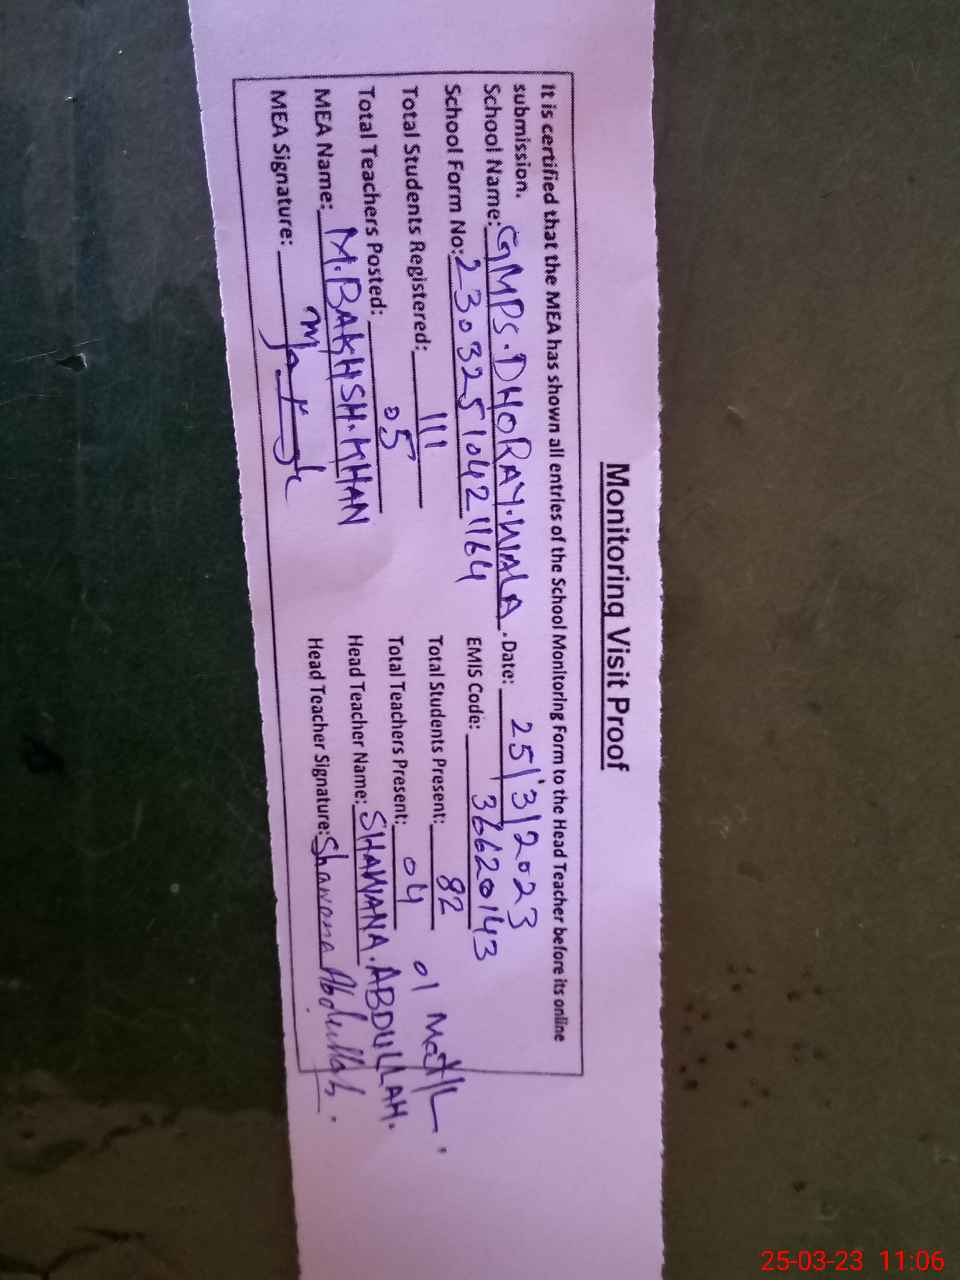 Monitoring Visit Proof
It is certified that the MEA has shown all entries of the School Monitoring Form to the Head Teacher before its online
submission.
School Name: GMPS.DHORAY.WALA. Date: 25/3/2023
School Form No: 23032510421164 EMIS Code: 36620143
Total Students Registered: 111 Total Students Present: 82
Total Teachers Posted: 05 Total Teachers Present: 04 01 Mat/L.
MEA Name: M.BAKHSH.KHAN Head Teacher Name: SHAWANA.ABDULLAH.
MEA Signature: Head Teacher Signature: Shawana Abdullah.
25-03-23 11:06